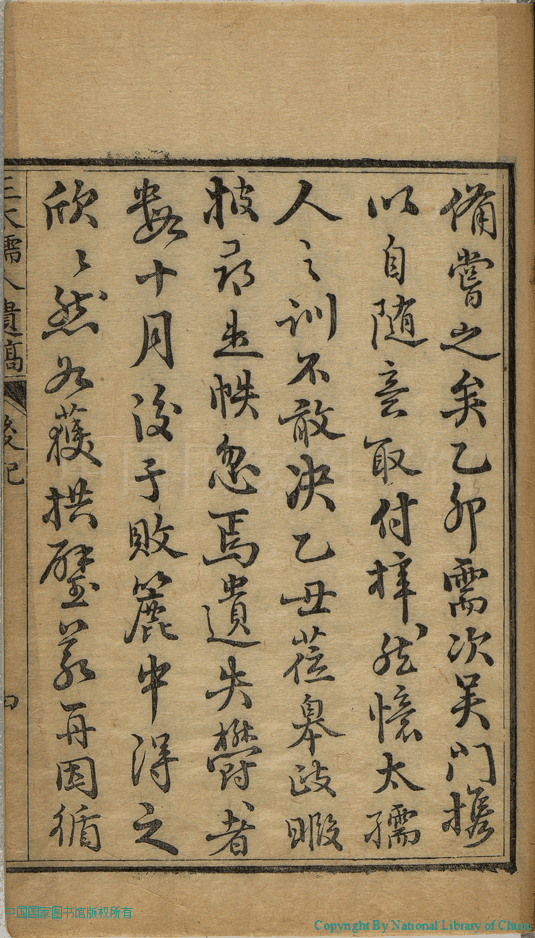 備嘗之矣乙卯需次吴門攜
以自随意取付梓然懷太孺
人之訓不敢决乙丑莅皋政暇
披尋是帙忽焉遺失鬱者
數十月後于敗簏中得之
欣〻然如獲拱璧若再因循
太孺人遺稿
後記
四
中国国家图书馆版权所有
Copyright By National Library of China